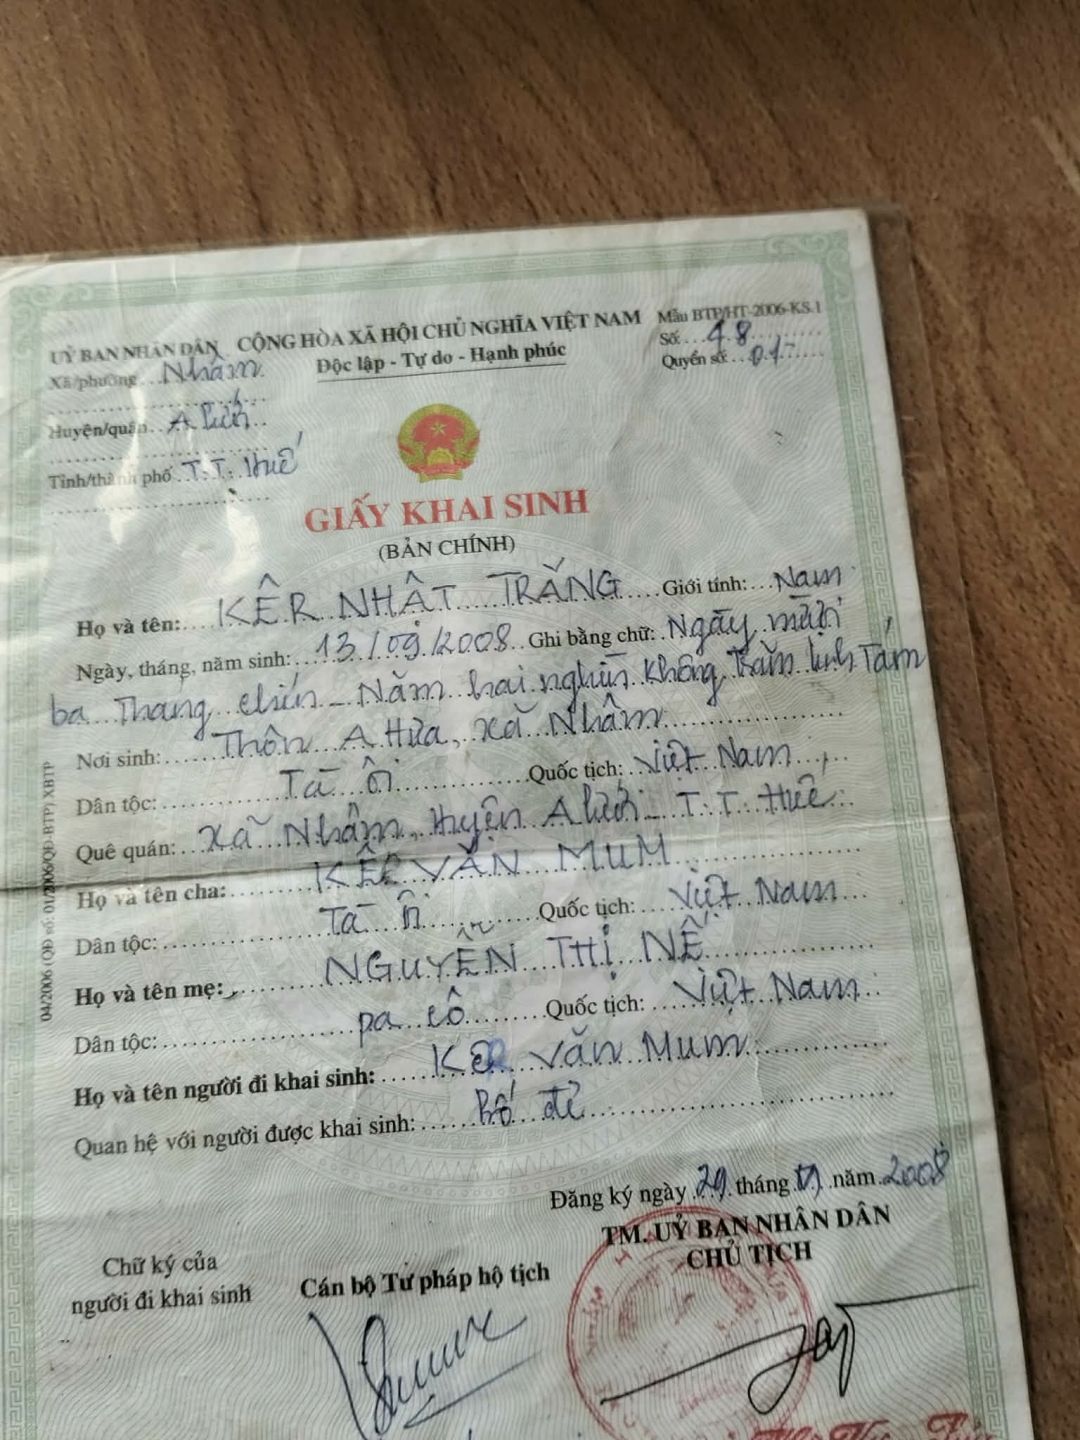 CỘNG HÒA XÃ HỘI CHỦ NGHĨA VIỆT NAM
Độc lập - Tự do - Hạnh phúc
Mẫu BTP/HT-2006-KS.1
Số: 48
Quyển số: 01
UỶ BAN NHÂN DÂN
Xã/phường Nhâm
Huyện/quận A lưới
Tỉnh/thành phố T.T. Huế
GIẤY KHAI SINH
(BẢN CHÍNH)
Họ và tên: KÊR NHẬT TRĂNG Giới tính: Nam
Ngày, tháng, năm sinh: 13/09/2008 Ghi bằng chữ: Ngày mười
ba Tháng chín Năm hai nghìn không trăm linh Tám
Nơi sinh: Thôn A Hưa, xã Nhâm
Dân tộc: Tà ôi Quốc tịch: Việt Nam
Quê quán: xã Nhâm, Huyện A lưới T.T. Huế
Họ và tên cha: KÊR VĂN MUM
Dân tộc: Tà ôi Quốc tịch: Việt Nam
Họ và tên mẹ: NGUYỄN THỊ NẾ
Dân tộc: pa cô Quốc tịch: Việt Nam
Họ và tên người đi khai sinh: Văn Mum
Quan hệ với người được khai sinh: Bố đẻ
Đăng ký ngày 29 tháng năm 2008
TM. UỶ BAN NHÂN DÂN
CHỦ TỊCH
Chữ ký của
người đi khai sinh
Cán bộ Tư pháp hộ tịch
04/2006 (QĐ số: 01/2006/QĐ-BTP) XBTP